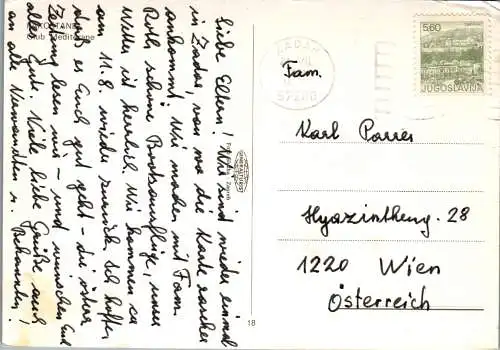 KOSTANJE
Club Mediterane
Liebe Eltern! Wir sind wieder einmal
in Zadar, von wo die Karte rascher
ankommt. Wir machen mit Fam.
Roth schöne Bootsausflüge, unser
Wetter ist herrlich. Wir kommen ca
am 11.8 wieder zurück. Ich hoffe
daß es Euch gut geht - die
Zeitung lesen wir - und wünschen Euch
alles Gute. Viele liebe Grüße auch
an alle Verwandten u. Bekannten!
18
ZADAR
57200
5,60
JUGOSLAVIJA
Fam.
Karl Porres
Hyazintheng. 28
1220 Wien
Österreich